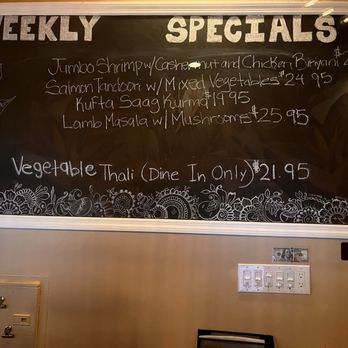 WEEKLY SPECIALS
Jumbo Shrimp w/ Cashewnut and Chicken Biryani $2
Salmon Tandoori w/ Mixed Vegetables $24.95
Kufta Saag Kurma $19.95
Lamb Masala w/ Mushrooms $25.95
Vegetable Thali (Dine In Only) $21.95